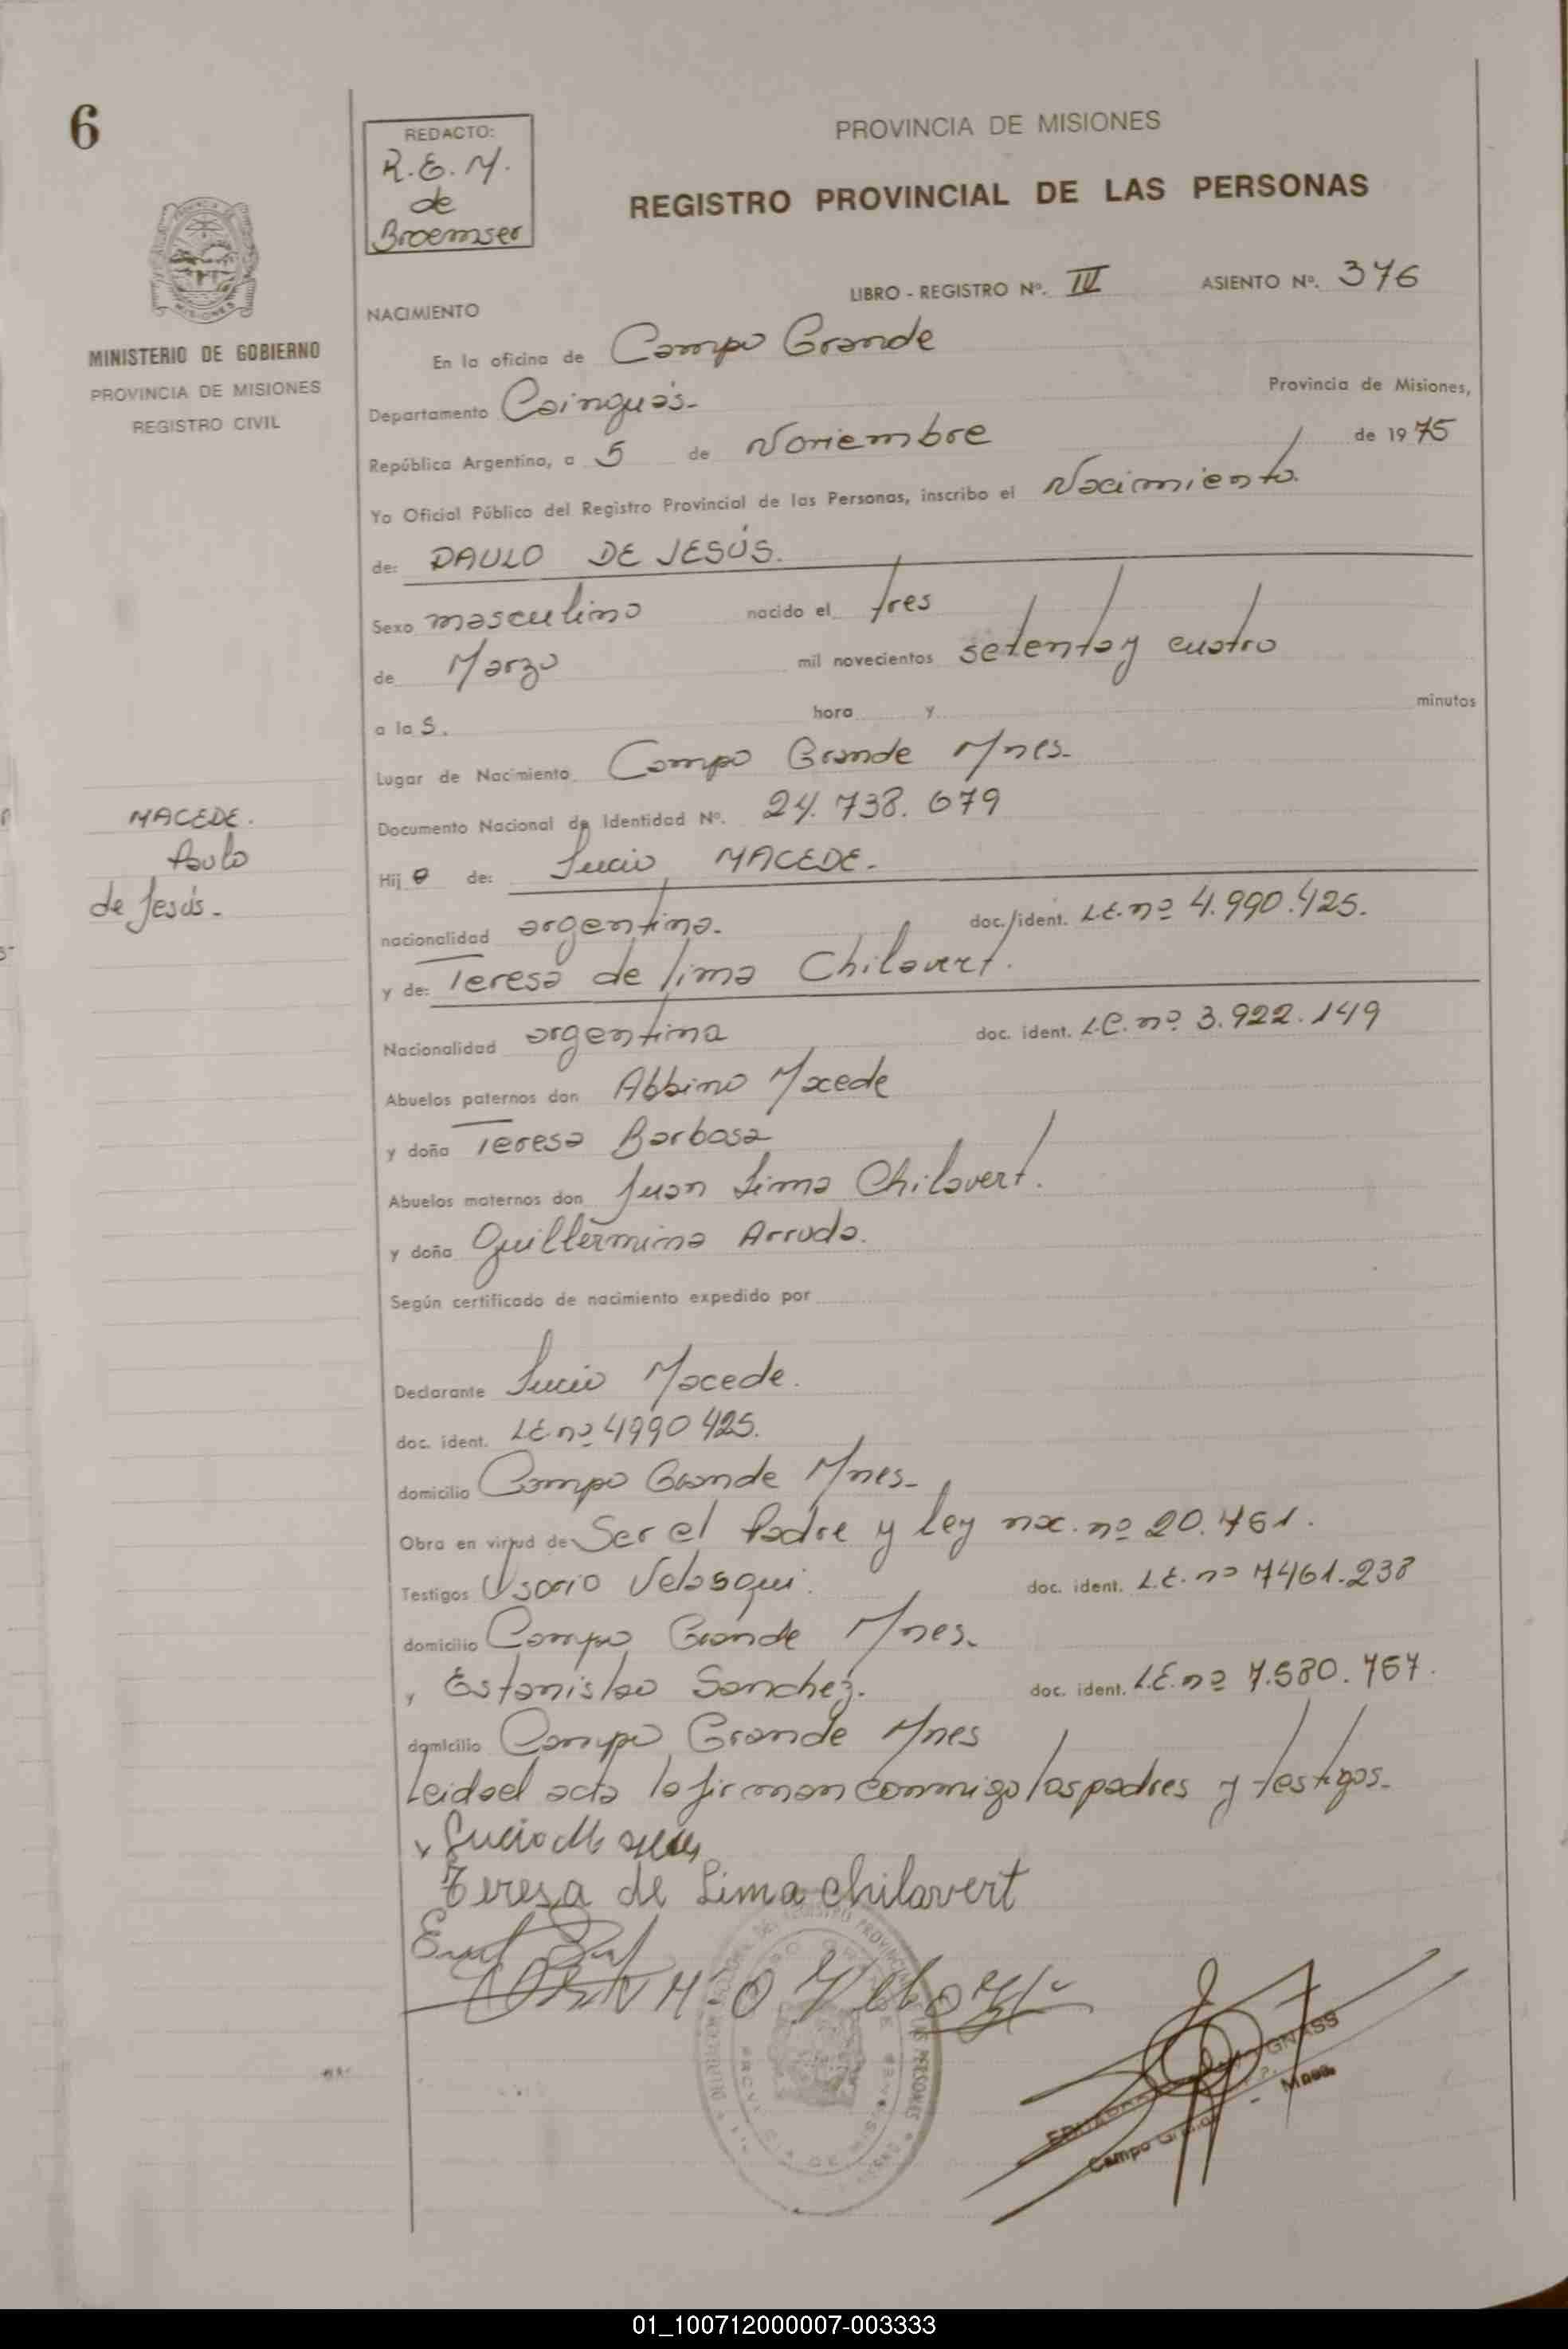 6
REDACTO:
R.E.M.
de
Broemser
PROVINCIA DE MISIONES
REGISTRO PROVINCIAL DE LAS PERSONAS
LIBRO - REGISTRO Nº. IV ASIENTO Nº. 376
NACIMIENTO
MINISTERIO DE GOBIERNO
PROVINCIA DE MISIONES
REGISTRO CIVIL
En la oficina de Campo Grande
Departamento Cainguás- Provincia de Misiones,
República Argentina, a 5 de Noviembre de 1975
Yo Oficial Público del Registro Provincial de las Personas, inscribo el Nacimiento.
de: PAULO DE JESÚS.
Sexo masculino nacido el tres
de Marzo mil novecientos setenta y cuatro
a la S. hora y minutos
Lugar de Nacimiento Campo Grande Mnes-
Documento Nacional de Identidad Nº. 24.738.679
MACEDE.
Paulo
de Jesús-
Hijo de: Lucio MACEDE-
nacionalidad argentina. doc./ident. L.E. nº 4.990.425.
y de: Teresa de lima Chilavert.
Nacionalidad argentina doc. ident. L.C. nº 3.922.149
Abuelos paternos don Abbino Macede
y doña Teresa Barbosa
Abuelos maternos don Juan Lima Chilavert.
y doña Guillermina Arruda.
Según certificado de nacimiento expedido por
Declarante Lucio Macede.
doc. ident. L.E. nº 4990 425.
domicilio Campo Grande Mnes-
Obra en virtud de Ser el Padre y ley nac. nº 20.761.
Testigos Osorio Velosqui. doc. ident. L.E. nº 7461.238
domicilio Campo Grande Mnes.
y Estanislao Sanchez. doc. ident. L.E. nº 7.580.767.
domicilio Campo Grande Mnes
Leida el acta la firman conmigo los padres y testigos-
Lucio
Teresa de Lima chilavert
GNASS
Campo Grande - Mnes.
01_100712000007-003333